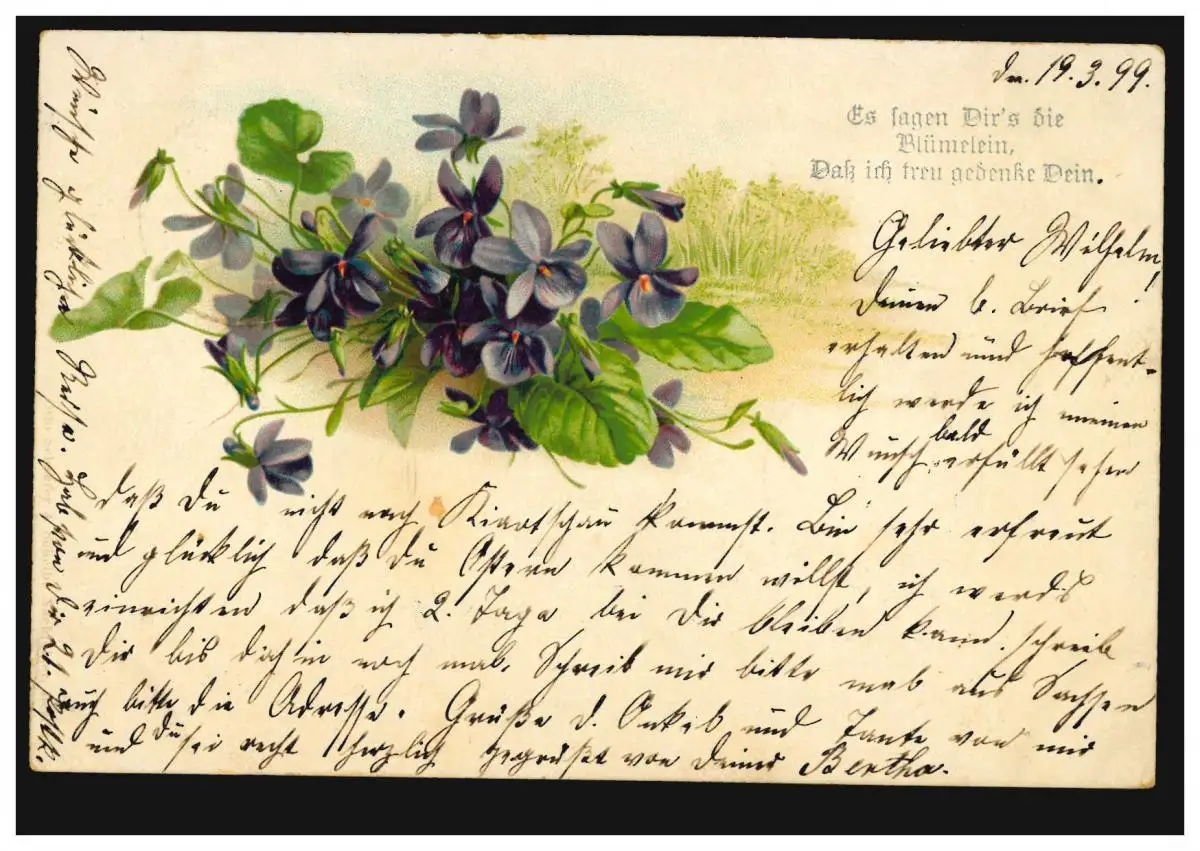 Dn. 19.3.99.
Es sagen Dir's die
Blümelein,
Daß ich treu gedenke Dein.
Geliebter Wilhelm!
Deinen l. Brief
erhalten und hoffent-
lich werde ich meinen
Wunsch bald erfüllt sehen
daß Du nicht nach Kiaotschau kommst. Bin sehr erfreut
und glücklich daß Du Ostern kommen willst, ich werds
einrichten daß ich 2. Tage bei Dir bleiben kann. schreib
Dir bis dahin noch mal. Schreib mir bitte mal aus Sachsen
auch bitte die Adresse. Grüße d. Onkel und Tante von mir
und Du sei recht herzlich gegrüßt von Deiner Bertha.
Wünsche glückliche Reise. Hab von Dir 21.